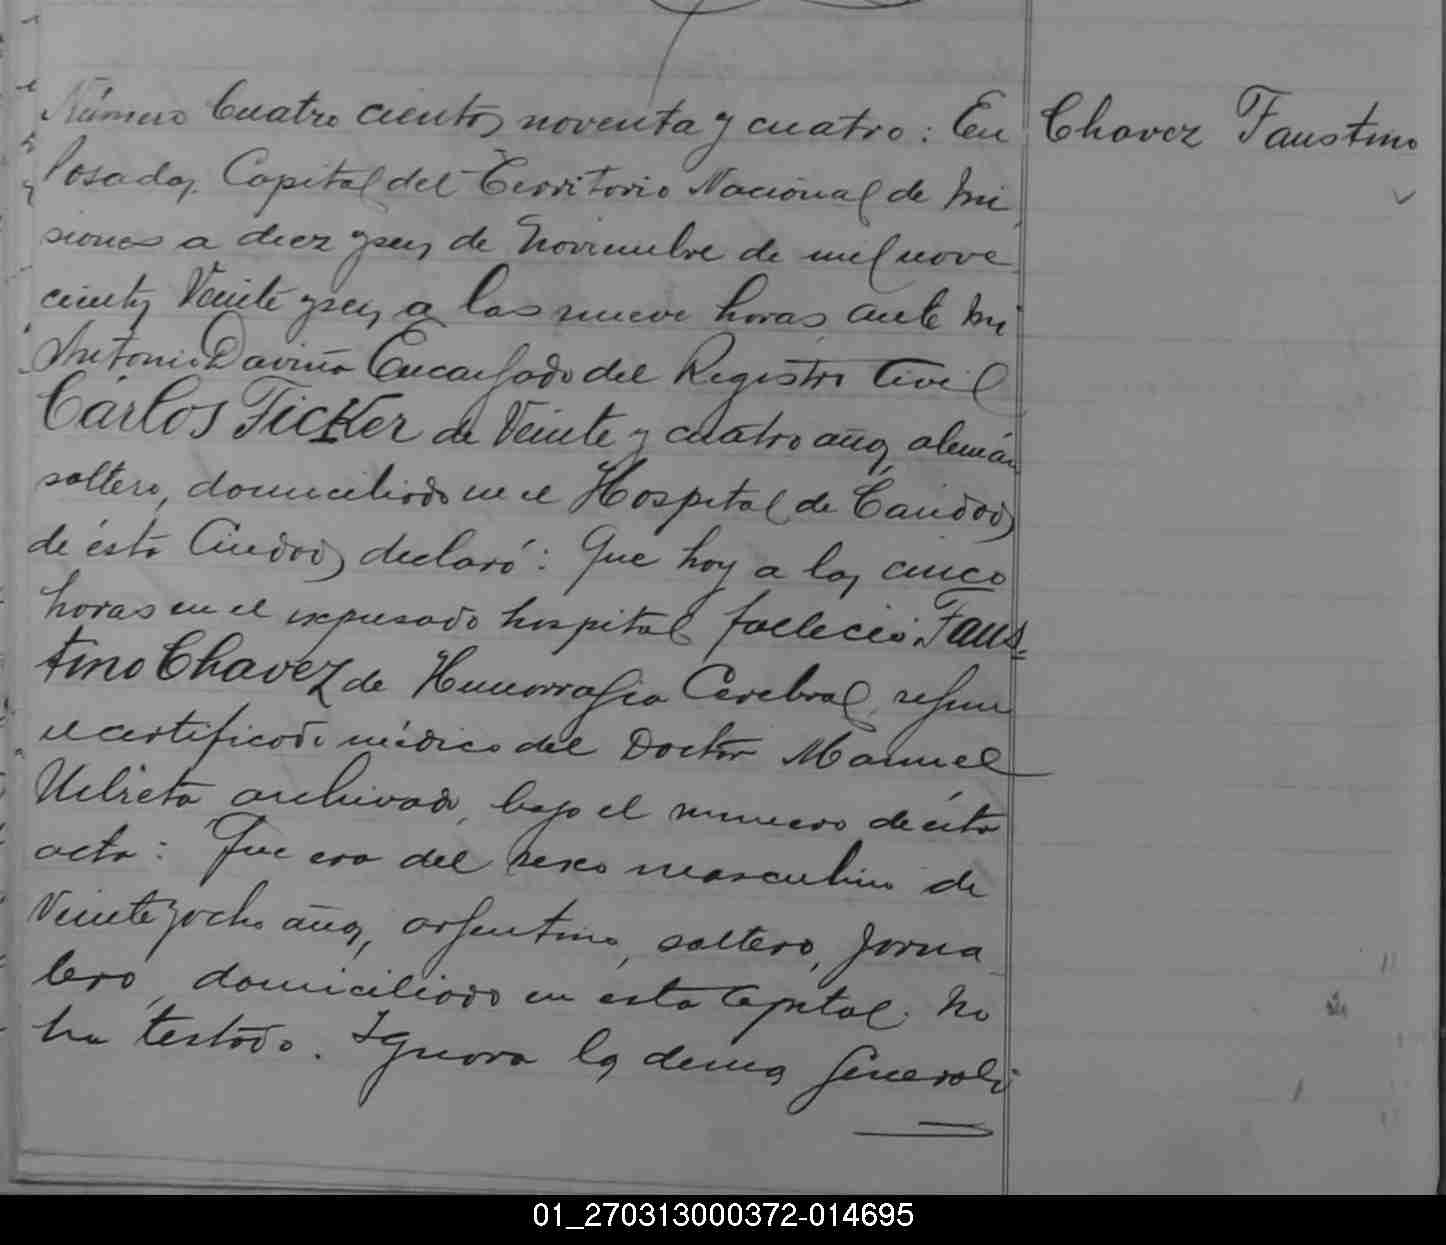 Número Cuatro cientos noventa y cuatro: En
Chavez Faustino
Posadas, Capital del Territorio Nacional de Mi
siones a diez y seis de Noviembre de mil nove
cientos Veinte y seis, a las nueve horas, ante mi
Antonio Daviña Encargado del Registro Civil
Cárlos Ticker de Veinte y cuatro años, alemán
soltero, domiciliado en el Hospital de Caridad
de ésta Ciudad, declaró: Que hoy a las cinco
horas en el expresado hospital falleció Faus-
tino Chavez de Hemorragia Cerebral, segun
el certificado médico del Doctor Manuel
archivado, bajo el numero de ésta
acta: Que era del sexo masculino de
Veinte y ocho años, argentino, soltero, jorna
lero, domiciliado en esta Capital. No
ha testado. Ignora las demas generales
01_270313000372-014695